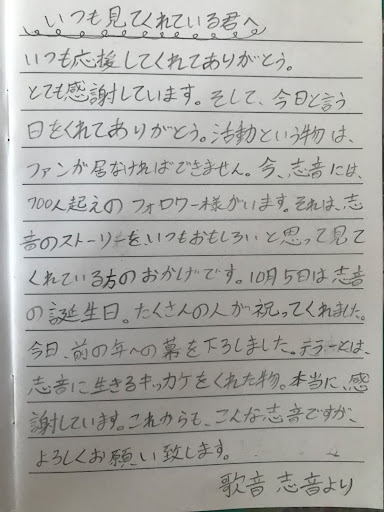 いつも見てくれている君へ
いつも応援してくれてありがとう。
とても感謝しています。そして、今日と言う
日をくれてありがとう。活動という物は、
ファンが居なければできません。今、志音には、
700人起えのフォロワー様がいます。それは、志
音のストーリーをいつもおもしろいと思って見て
くれている方のおかげです。10月5日は志音
の誕生日。たくさんの人が祝ってくれました。
今日、前の年への幕を下ろしました。テラーとは、
志音に生きるキッカケをくれた物。本当に、感
謝しています。これからも、こんな志音ですが、
よろしくお願い致します。
歌音 志音より